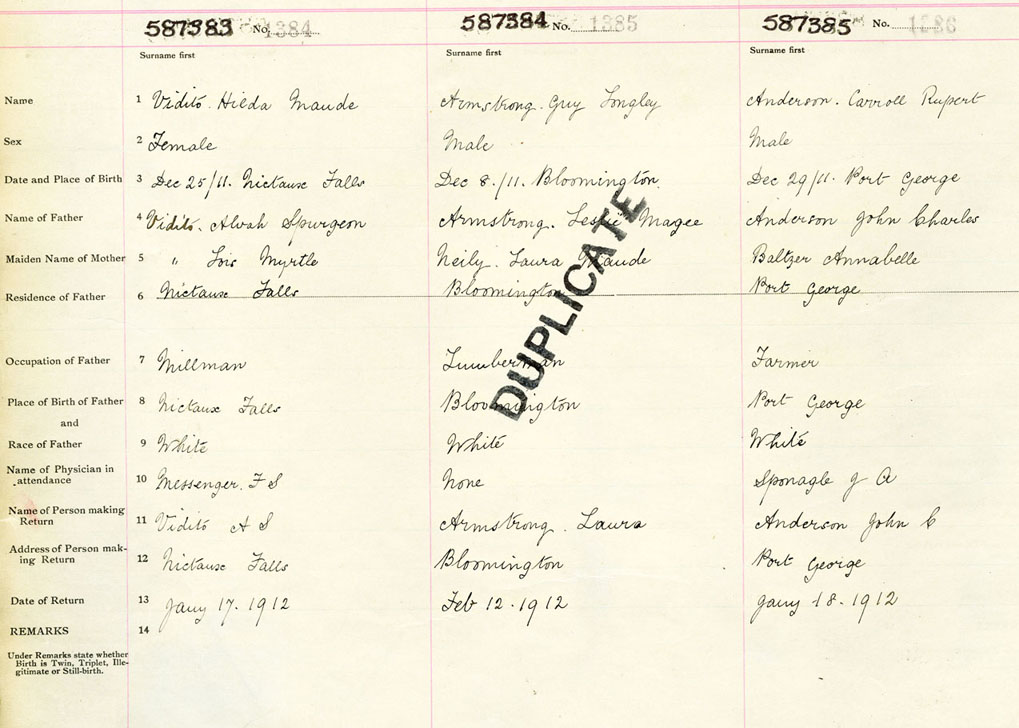 587383 No. 1384 587384 No. 1385 587385 No. 1386
Surname first Surname first Surname first
Name 1 Vidito. Hilda Maude Armstrong. Guy Longley Anderson. Carroll Rupert
Sex 2 Female Male Male
Date and Place of Birth 3 Dec 25/11. Nictaux Falls Dec 8./11. Bloomington. Dec 29/11. Port George
Name of Father 4 Vidito. Alvah Spurgeon Armstrong. Leslie Magee Anderson John Charles
Maiden Name of Mother 5 " Lois Myrtle Neily. Laura Maude Baltzer Annabelle
Residence of Father 6 Nictaux Falls Bloomington Port George
DUPLICATE
Occupation of Father 7 Millman Lumberman Farmer
Place of Birth of Father 8 Nictaux Falls Bloomington Port George
and
Race of Father 9 White White White
Name of Physician in
attendance 10 Messenger. F S None Sponagle J A
Name of Person making
Return 11 Vidito A S Armstrong. Laura Anderson John C
Address of Person mak-
ing Return 12 Nictaux Falls Bloomington Port George
Date of Return 13 Jany 17. 1912 Feb 12. 1912 Jany 18. 1912
REMARKS 14
Under Remarks state whether
Birth is Twin, Triplet, Ille-
gitimate or Still-birth.